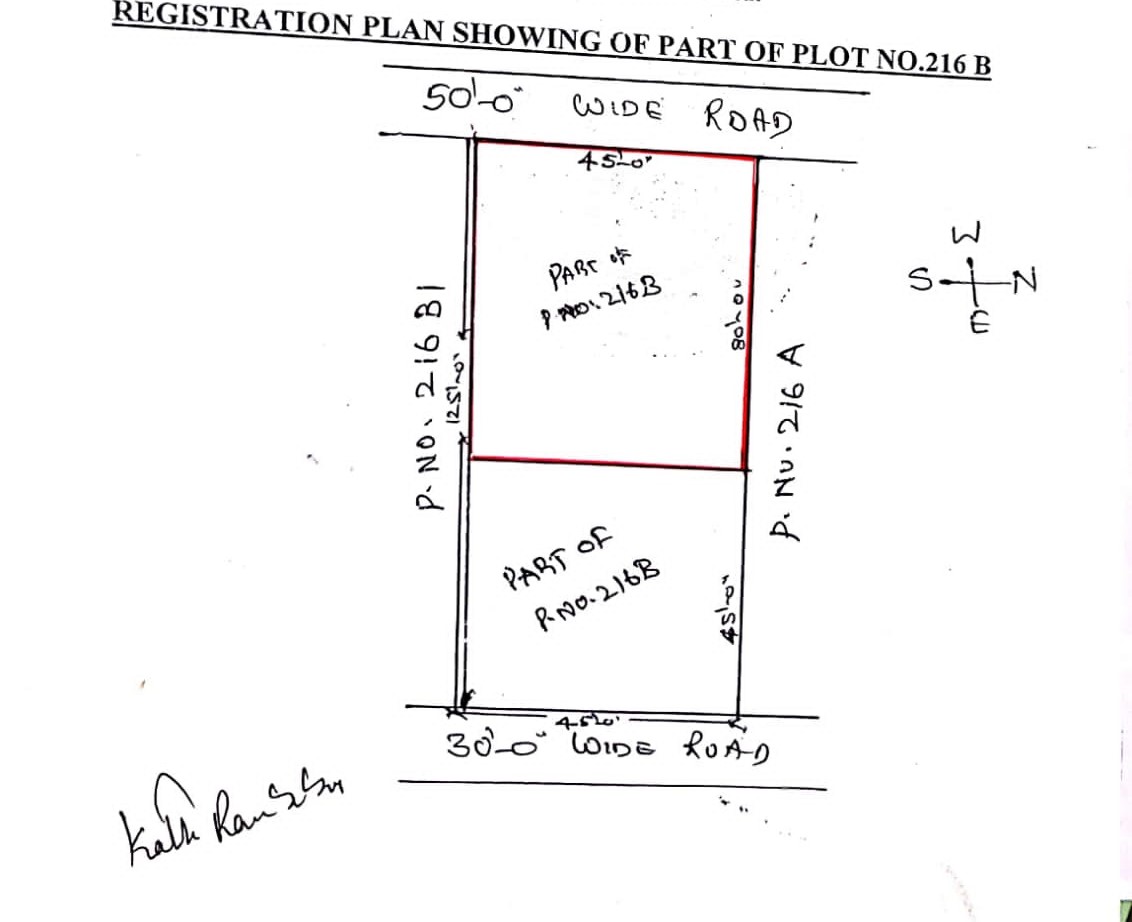 REGISTRATION PLAN SHOWING OF PART OF PLOT NO.216 B
50'-0" WIDE ROAD
45'-0"
PART OF
P.NO.216B
80'-0"
P.NO. 216 B1
125'-0"
P.NO. 216 A
W
S N
E
PART OF
P.NO.216B
45'-0"
45'-0"
30'-0" WIDE ROAD